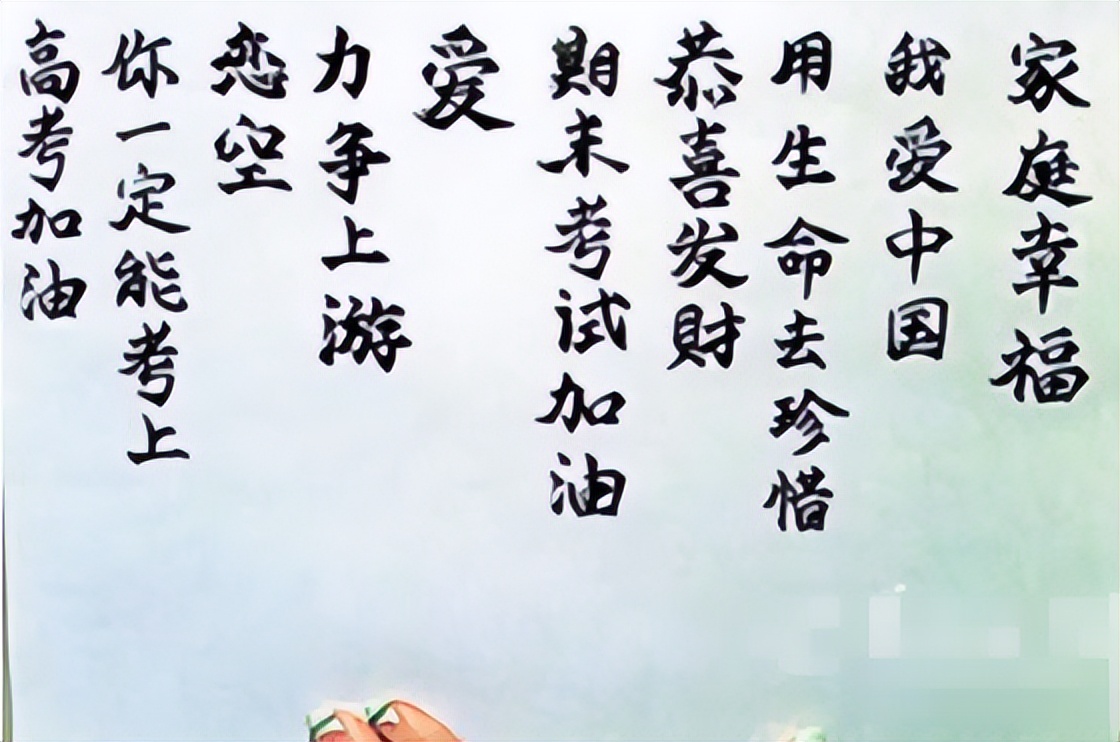 家庭幸福
我爱中国
用生命去珍惜
恭喜发財
期末考试加油
爱
力争上游
恋空
你一定能考上
高考加油